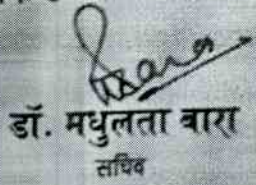 डॉ. मधुलता बारा
सचिव